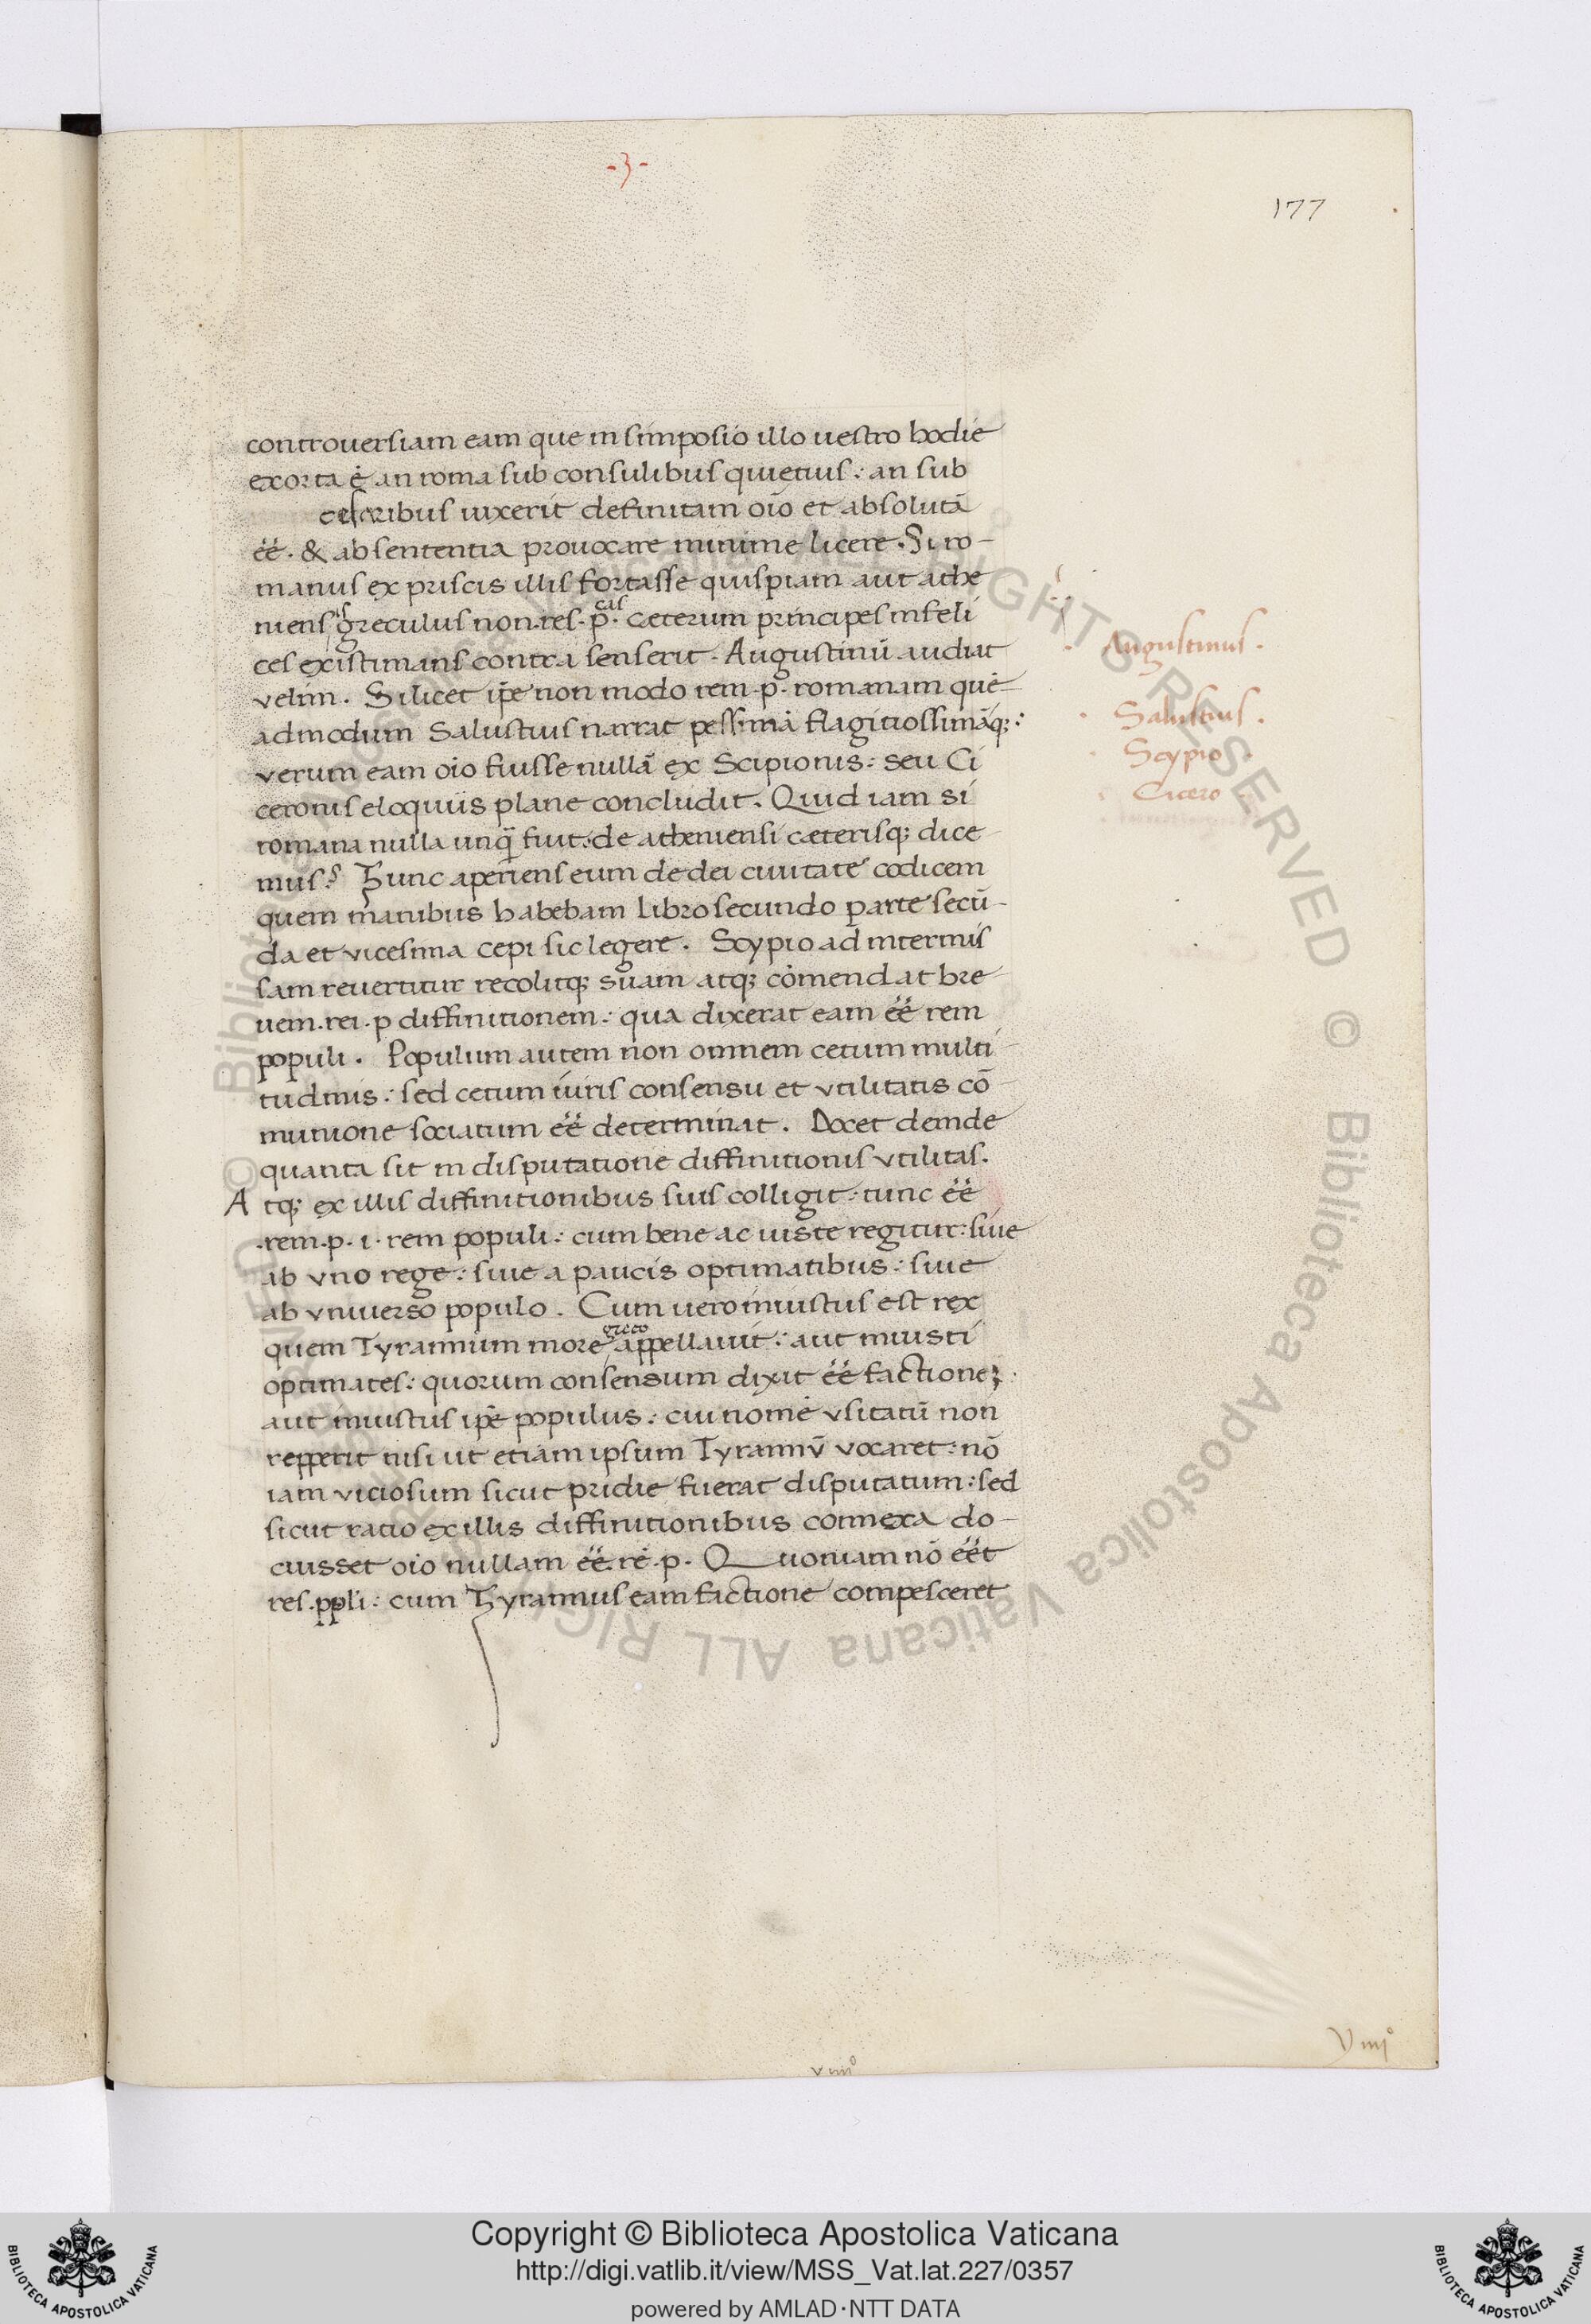 -3-
177
controuersiam eam que in simposio illo uestro hodie
exorta ē an roma sub consulibus quietius: an sub
cesaribus uixerit definitam oīo et absolutā
éé. & ab sententia prouocare minime licere. Si ro-
manus ex priscis illis fortasse quispiam aut athe
niensis greculus non res. p.cas cæterum principes infeli
ces existimans contra senserit. Augustinū audiat
velim. Si licet ip̄e non modo rem. p. romanam quē
admodum Salustius narrat pessimā flagitiossimāq;:
verum eam oīo fuisse nullā ex Scipionis: seu Ci
ceronis eloquiis plane concludit. Quid iam si
romana nulla unq̄ fuit: de atheniensi cæterisq; dice
mus? Hunc aperiens eum de dei ciuitate codicem
quem manibus habebam libro secundo parte secū-
da et vicesima cepi sic legere. Scypio ad intermis
sam reuertitur recolitq; suam atq; cōmendat bre
uem. rei. p diffinitionem: qua dixerat eam éé rem
populi. Populum autem non omnem cetum multi
tudinis: sed cetum iuris consensu et vtilitatis cō
munione sociatum éé determinat. Docet deinde
quanta sit in disputatione diffinitionis vtilitas.
Atq; ex illis diffinitionibus suis colligit: tunc éé
.rem. p. i. rem populi: cum bene ac iuste regitur: siue
ab vno rege: siue a paucis optimatibus: siue
ab vniuerso populo. Cum uero iniustus est rex
quem Tyrannum more greco appellauit: aut iniusti
optimates: quorum consensum dixit éé factionez:
aut iniustus ip̄e populus: cui nomē vsitatū non
repperit nisi ut etiam ipsum Tyrannū vocaret: nō
iam viciosum sicut pridie fuerat disputatum: sed
sicut ratio ex illis diffinitionibus connexa do-
cuisset oīo nullam éé. rē. p. Quoniam nō éét
res. ppli: cum Thyrannus eam factione compesceret
Augustinus.
Salustius.
Scypio.
Cicero
Viiijº
viiiº
© Biblioteca Apostolica Vaticana ALL RIGHTS RESERVED © Biblioteca Apostolica Vaticana ALL RIGHTS RESERVED
Copyright © Biblioteca Apostolica Vaticana
http://digi.vatlib.it/view/MSS_Vat.lat.227/0357
powered by AMLAD·NTT DATA
BIBLIOTECA APOSTOLICA VATICANA
BIBLIOTECA APOSTOLICA VATICANA